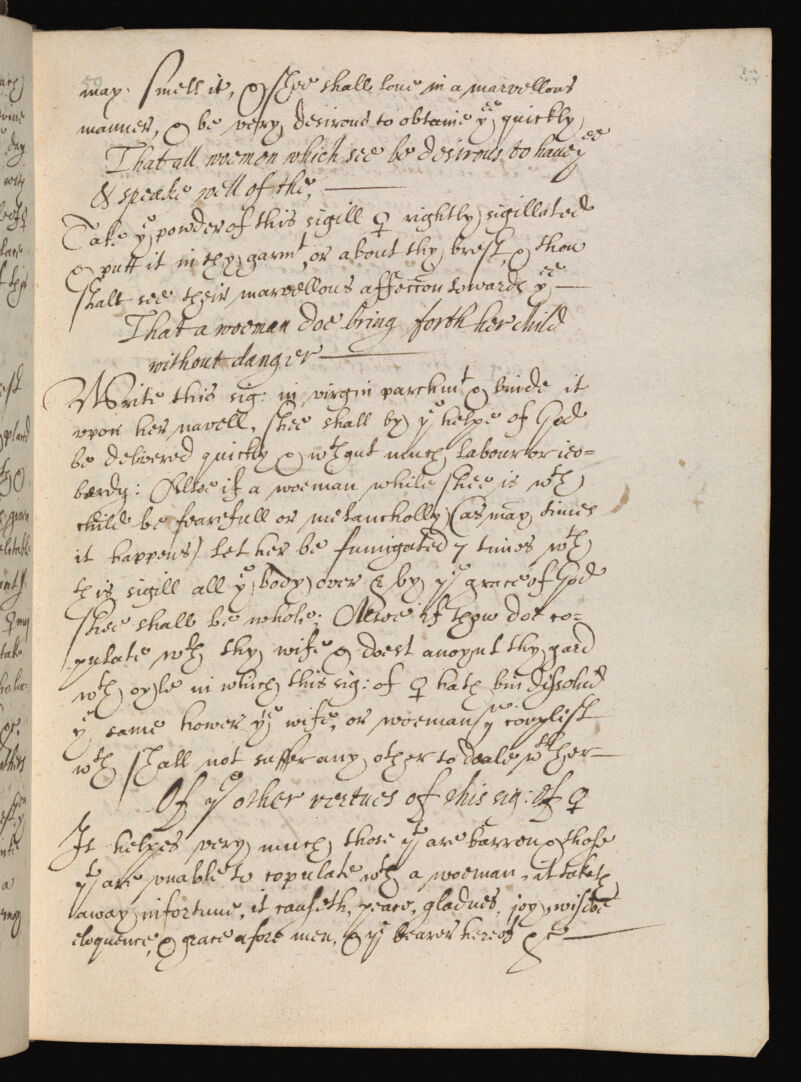 59
may smell it, & shee shall loue in a marvellous
manner, & be very desirous to obtaine yee quickly
That all woemen which see be desirous to haue yee
& speake well of the,
Take ye powder of this sigill ♀ rightly sigillated
& putt it in thy garmt, or about thy brest, & thou
shalt see their marvellous affeccon towards yee
That a woeman doe bring forth her child
without danger
Write this sig: in virgin parchmt & binde it
vpon her navell, shee shall by ye helpe of God
be delivered quickly & wthout much labour or ieo-
bardy: Alsoe if a woeman while shee is wth
child be fearefull or melancholly (as many times
it happens) let her be fumigated 7 times wth
this sigill all ye body over & by ye grace of God
shee shall be whole: Alsoe if thow dot co-
pulate wth thy wife & doest anoynt thy yard
wth oyle in which this sig: of ♀ hath bin dissolud
ye same hower yt wife, or woeman yu couplist
wth shall not suffer any other to deale wth her
Of ye other vertues of this sig: of ♀
It helpes very much those yt are barren & those
yt are vnable to copulate wth a woeman, it taketh
away infortune, it causeth, peace, gladnes, joy, wisdoe
eloquence, & grace afore men, & ye bearer hereof &c